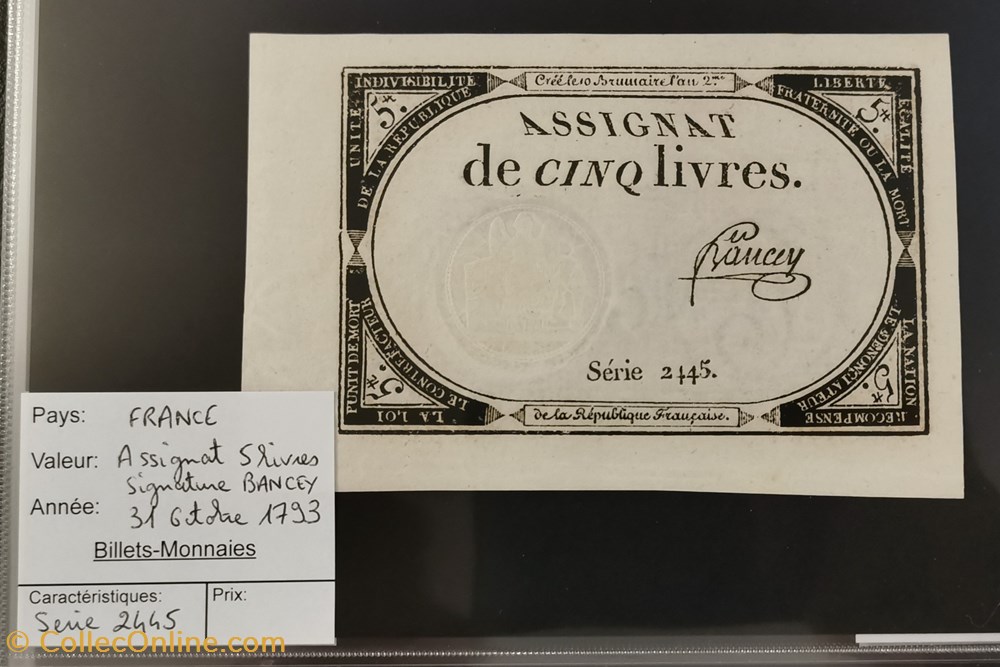 INDIVISIBILITE
Créé le 10 Brumaire l'an 2.me
LIBERTE
UNITE
DE LA RÉPUBLIQUE
5.
FRATERNITE OU LA MORT
5.
EGALITE
ASSIGNAT
de CINQ livres.
Bancey
Série 2445.
PUNIT DE MORT
LE CONTREFACTEUR
5.
LA LOI
de la République Française.
LA NATION
LE DENONCIATEUR
5.
RECOMPENSE
Pays: FRANCE
Valeur: Assignat 5 livres
signature BANCEY
Année: 31 Octobre 1793
Billets-Monnaies
Caractéristiques: Prix:
Série 2445
© CollecOnline.com